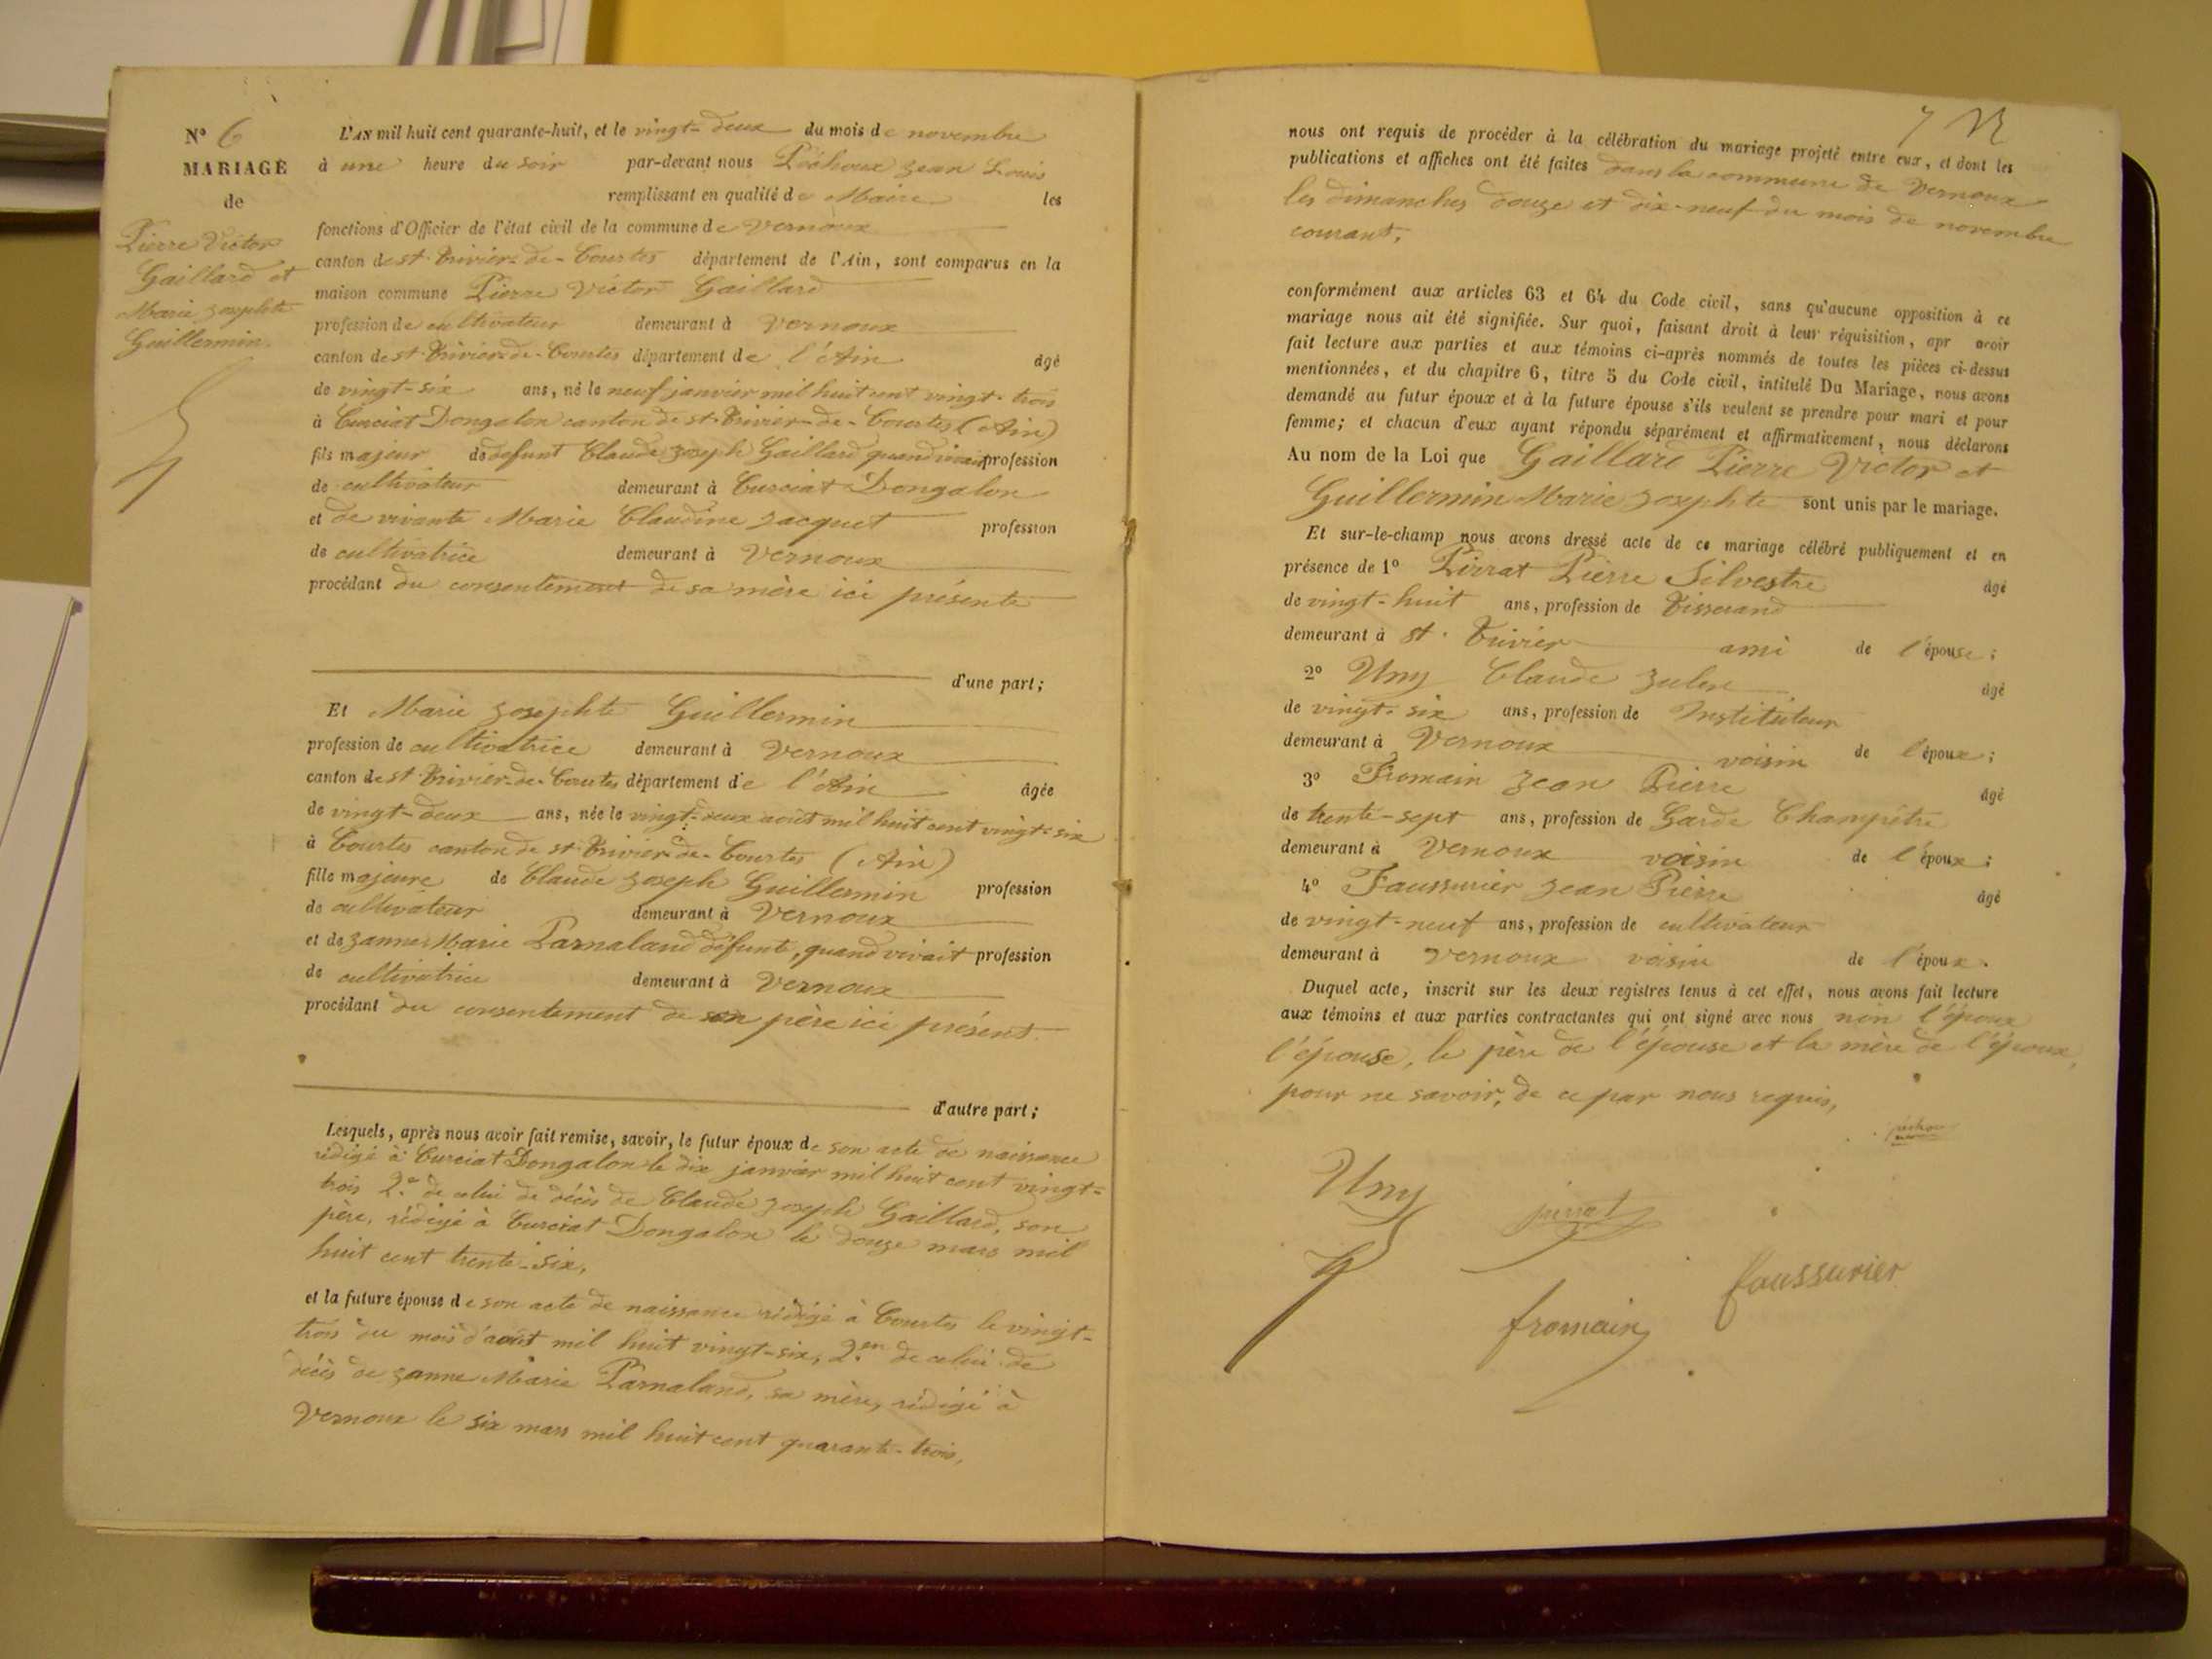 N° 6
MARIAGE
de
Pierre Victor
Gaillard et
Marie Josephte
Guillermin.
L'AN mil huit cent quarante-huit, et le vingt-deux du mois de novembre
à une heure du soir par-devant nous Péchoux Jean Louis
remplissant en qualité de Maire les
fonctions d'Officier de l'état civil de la commune de Vernoux
canton de st. Trivier-de-Courtes département de l'Ain, sont comparus en la
maison commune Pierre Victor Gaillard
profession de cultivateur demeurant à Vernoux
canton de st. Trivier-de-Courtes département de l'Ain âgé
de vingt-six ans, né le neuf janvier mil huit cent vingt-trois
à Curciat Dongalon canton de st. Trivier-de-Courtes (Ain)
fils majeur de defunt Claude Joseph Gaillard quand vivait profession
de cultivateur demeurant à Curciat Dongalon
et de vivante Marie Claudine Jacquet profession
de cultivatrice demeurant à Vernoux
procédant du consentement de sa mère ici présente
d'une part;
Et Marie Josephte Guillermin
profession de cultivatrice demeurant à Vernoux
canton de st. Trivier-de-Courtes département de l'Ain âgée
de vingt-deux ans, née le vingt-deux août mil huit cent vingt-six
à Courtes canton de st. Trivier-de-Courtes (Ain)
fille majeure de Claude Joseph Guillermin profession
de cultivateur demeurant à Vernoux
et de Janne Marie Parnaland défunte, quand vivait profession
de cultivatrice demeurant à Vernoux
procédant du consentement de son père ici présent.
d'autre part;
Lesquels, après nous avoir fait remise, savoir, le futur époux de son acte de naissance
rédigé à Curciat Dongalon le dix janvier mil huit cent vingt-
trois 2.° de celui de décès de Claude Joseph Gaillard, son
père, rédigé à Curciat Dongalon le douze mars mil
huit cent trente-six,
et la future épouse de son acte de naissance rédigé à Courtes le vingt-
trois du mois d'août mil huit vingt-six, 2.en de celui de
décès de Janne Marie Parnaland, sa mère, rédigé à
Vernoux le six mars mil huit cent quarante-trois,
7
nous ont requis de procéder à la célébration du mariage projeté entre eux, et dont les
publications et affiches ont été faites dans la commune de Vernoux
les dimanches douze et dix-neuf du mois de novembre
courant,
conformément aux articles 63 et 64 du Code civil, sans qu'aucune opposition à ce
mariage nous ait été signifiée. Sur quoi, faisant droit à leur réquisition, apr avoir
fait lecture aux parties et aux témoins ci-après nommés de toutes les pièces ci-dessus
mentionnées, et du chapitre 6, titre 5 du Code civil, intitulé Du Mariage, nous avons
demandé au futur époux et à la future épouse s'ils veulent se prendre pour mari et pour
femme; et chacun d'eux ayant répondu séparément et affirmativement, nous déclarons
Au nom de la Loi que Gaillard Pierre Victor et
Guillermin Marie Josephte sont unis par le mariage.
Et sur-le-champ nous avons dressé acte de ce mariage célébré publiquement et en
présence de 1° Pirrat Pierre Silvestre âgé
de vingt-huit ans, profession de Tisserand
demeurant à st. Trivier ami de l'épouse;
2° Uny Claude Julien âgé
de vingt-six ans, profession de Instituteur
demeurant à Vernoux voisin de l'époux;
3° Fromain Jean Pierre âgé
de trente-sept ans, profession de Garde Champêtre
demeurant à Vernoux voisin de l'époux;
4° Faussurier Jean Pierre âgé
de vingt-neuf ans, profession de cultivateur
demeurant à Vernoux voisin de l'époux.
Duquel acte, inscrit sur les deux registres tenus à cet effet, nous avons fait lecture
aux témoins et aux parties contractantes qui ont signé avec nous non l'époux
l'épouse, le père de l'épouse et la mère de l'époux,
pour ne savoir, de ce par nous requis,
péchoux
Uny
pirrat
faussurier
fromain